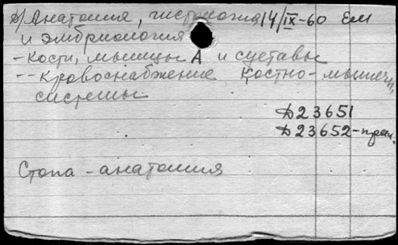 а) Анатомия, гистология 14/IX-60 Ем
и эмбриология
- Кости, мышцы А и суставы
-- Кровоснабжение костно-мышечн.
системы
Д23651
Д23652-прен.
Стопа - анатомия